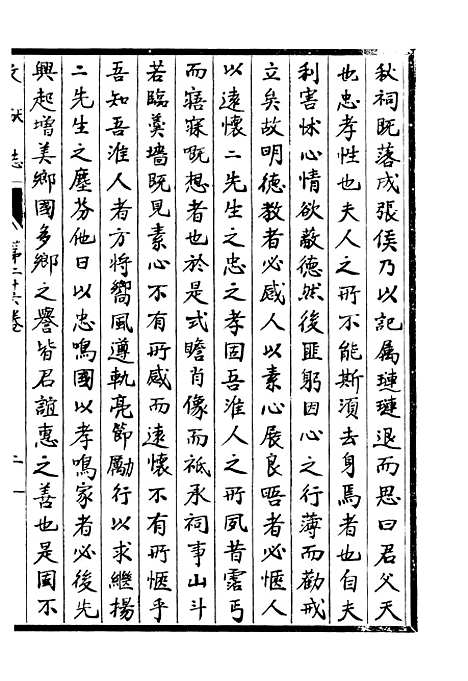 秋祠既落成張侯乃以記属璉璉退而思曰君父天
也忠孝性也夫人之所不能斯須去身焉者也自夫
利害怵心情欲蔽德然後匪躬因心之行薄而勸戒
立矣故明德教者必感人以素心展良晤者必愜人
以遠懷二先生之忠之孝固吾淮人之所夙昔霑丐
而寤寐嘅想者也於是式瞻肖像而祗承祠事山斗
若臨羹墻既見素心不有所感而遠懷不有所愜乎
吾知吾淮人者方將嚮風遵軌亮節勵行以求繼揚
二先生之塵芬他日以忠鳴國以孝鳴家者必後先
興起增美鄉國多鄉之譽皆君誼惠之善也是固不
文獻志
第二十六卷
二